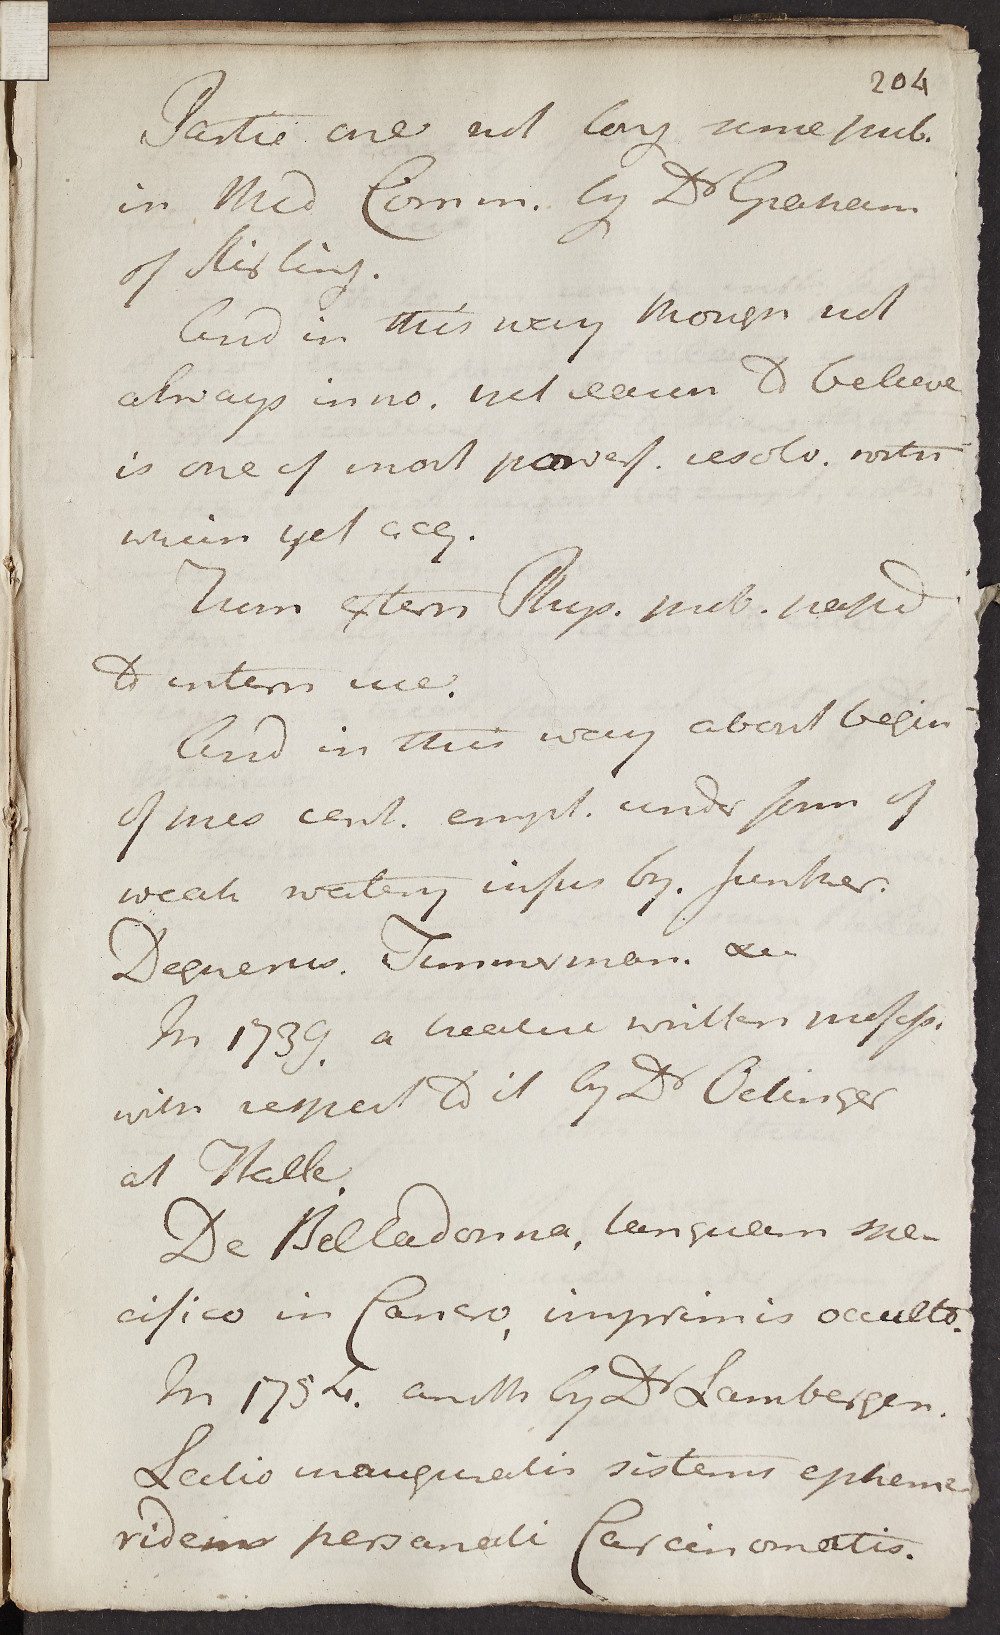 204
Partic one not long since pub.
in Med Comm. by Dr Graham
of Stirling.
And in this way though not
always inno. yet reason to believe
is one of most powerf. resolv. with
which yet acq.
From extern Phys. pub. passd
to intern use.
And in this way about begin
of pres cent. empl. under form of
weak watery infus by. Junker.
Degnerus. Timmerman. &c
In 1739. a treatise written profess.
with respect to it by Dr Oetinger
at Halle.
De Belladonna, tanquam spe-
cifico in Cancro, imprimis occulto.
In 1754. anoth by Dr Lambergen.
Lectio inauguralis sistens epheme
ridem persanati Carcinomatis.